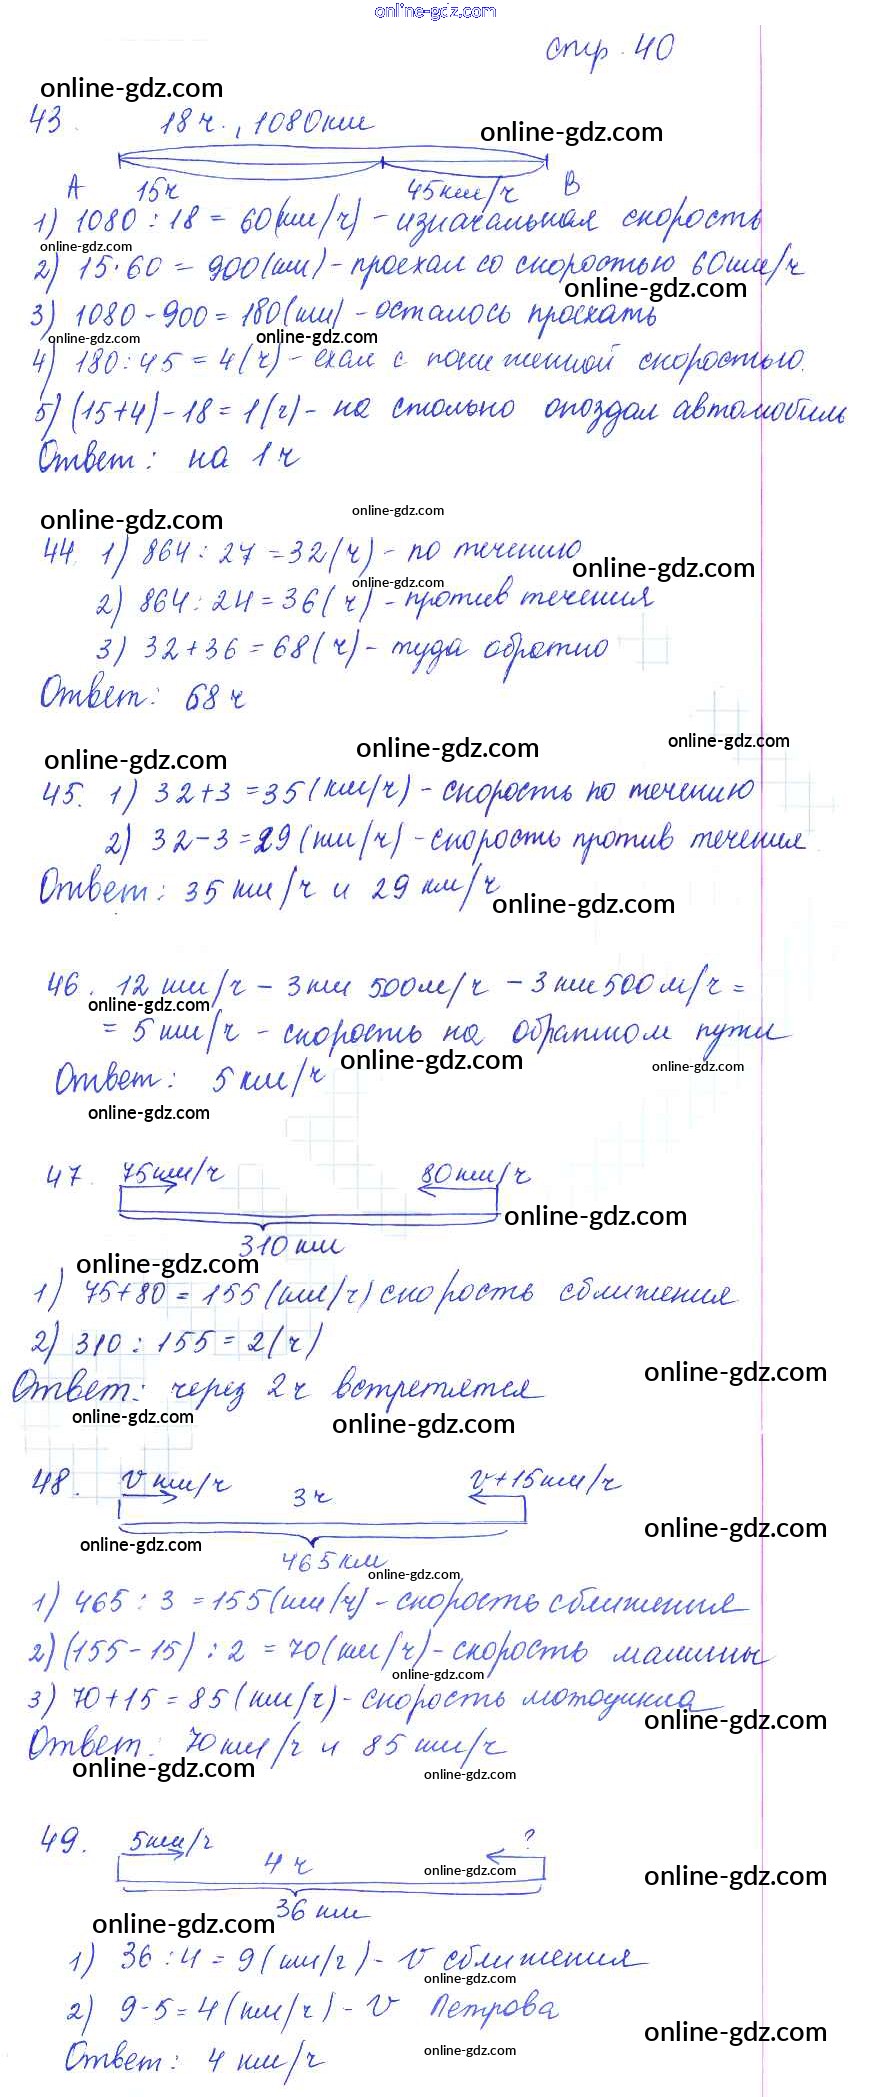 online-gdz.com
стр. 40
online-gdz.com
43. 18 ч., 1080 км
online-gdz.com
А 15ч 45км/ч В
1) 1080 : 18 = 60(км/ч) - изначальная скорость
online-gdz.com
2) 15·60 = 900(км) - проехал со скоростью 60км/ч
online-gdz.com
3) 1080 - 900 = 180(км) - осталось проехать
online-gdz.com online-gdz.com
4) 180 : 45 = 4(ч) - ехал с пониженной скоростью.
5) (15+4) - 18 = 1(ч) - на столько опоздал автомобиль
Ответ: на 1 ч
online-gdz.com online-gdz.com
44. 1) 864 : 27 = 32(ч) - по течению
online-gdz.com
online-gdz.com
2) 864 : 24 = 36(ч) - против течения
3) 32 + 36 = 68(ч) - туда обратно
Ответ: 68 ч
online-gdz.com online-gdz.com online-gdz.com
45. 1) 32+3 = 35(км/ч) - скорость по течению
2) 32-3 = 29(км/ч) - скорость против течения
Ответ: 35 км/ч и 29 км/ч
online-gdz.com
46. 12 км/ч - 3км 500м/ч - 3км 500м/ч =
online-gdz.com
= 5 км/ч - скорость на обратном пути
online-gdz.com online-gdz.com
Ответ: 5 км/ч
online-gdz.com
47. 75км/ч 80км/ч
online-gdz.com
310 км
online-gdz.com
1) 75+80 = 155(км/ч) скорость сближения
2) 310 : 155 = 2(ч)
online-gdz.com
Ответ: через 2ч встретятся
online-gdz.com online-gdz.com
48. v км/ч 3ч v+15км/ч
online-gdz.com
online-gdz.com
465 км
online-gdz.com
1) 465 : 3 = 155(км/ч) - скорость сближения
2) (155 - 15) : 2 = 70(км/ч) - скорость машины
online-gdz.com
3) 70+15 = 85(км/ч) - скорость мотоцикла
online-gdz.com
Ответ: 70км/ч и 85 км/ч
online-gdz.com online-gdz.com
49. 5км/ч 4 ч ?
online-gdz.com online-gdz.com
36 км
online-gdz.com
1) 36 : 4 = 9(км/ч) - v сближения
online-gdz.com
2) 9-5 = 4(км/ч) - v Петрова
online-gdz.com
Ответ: 4 км/ч
online-gdz.com